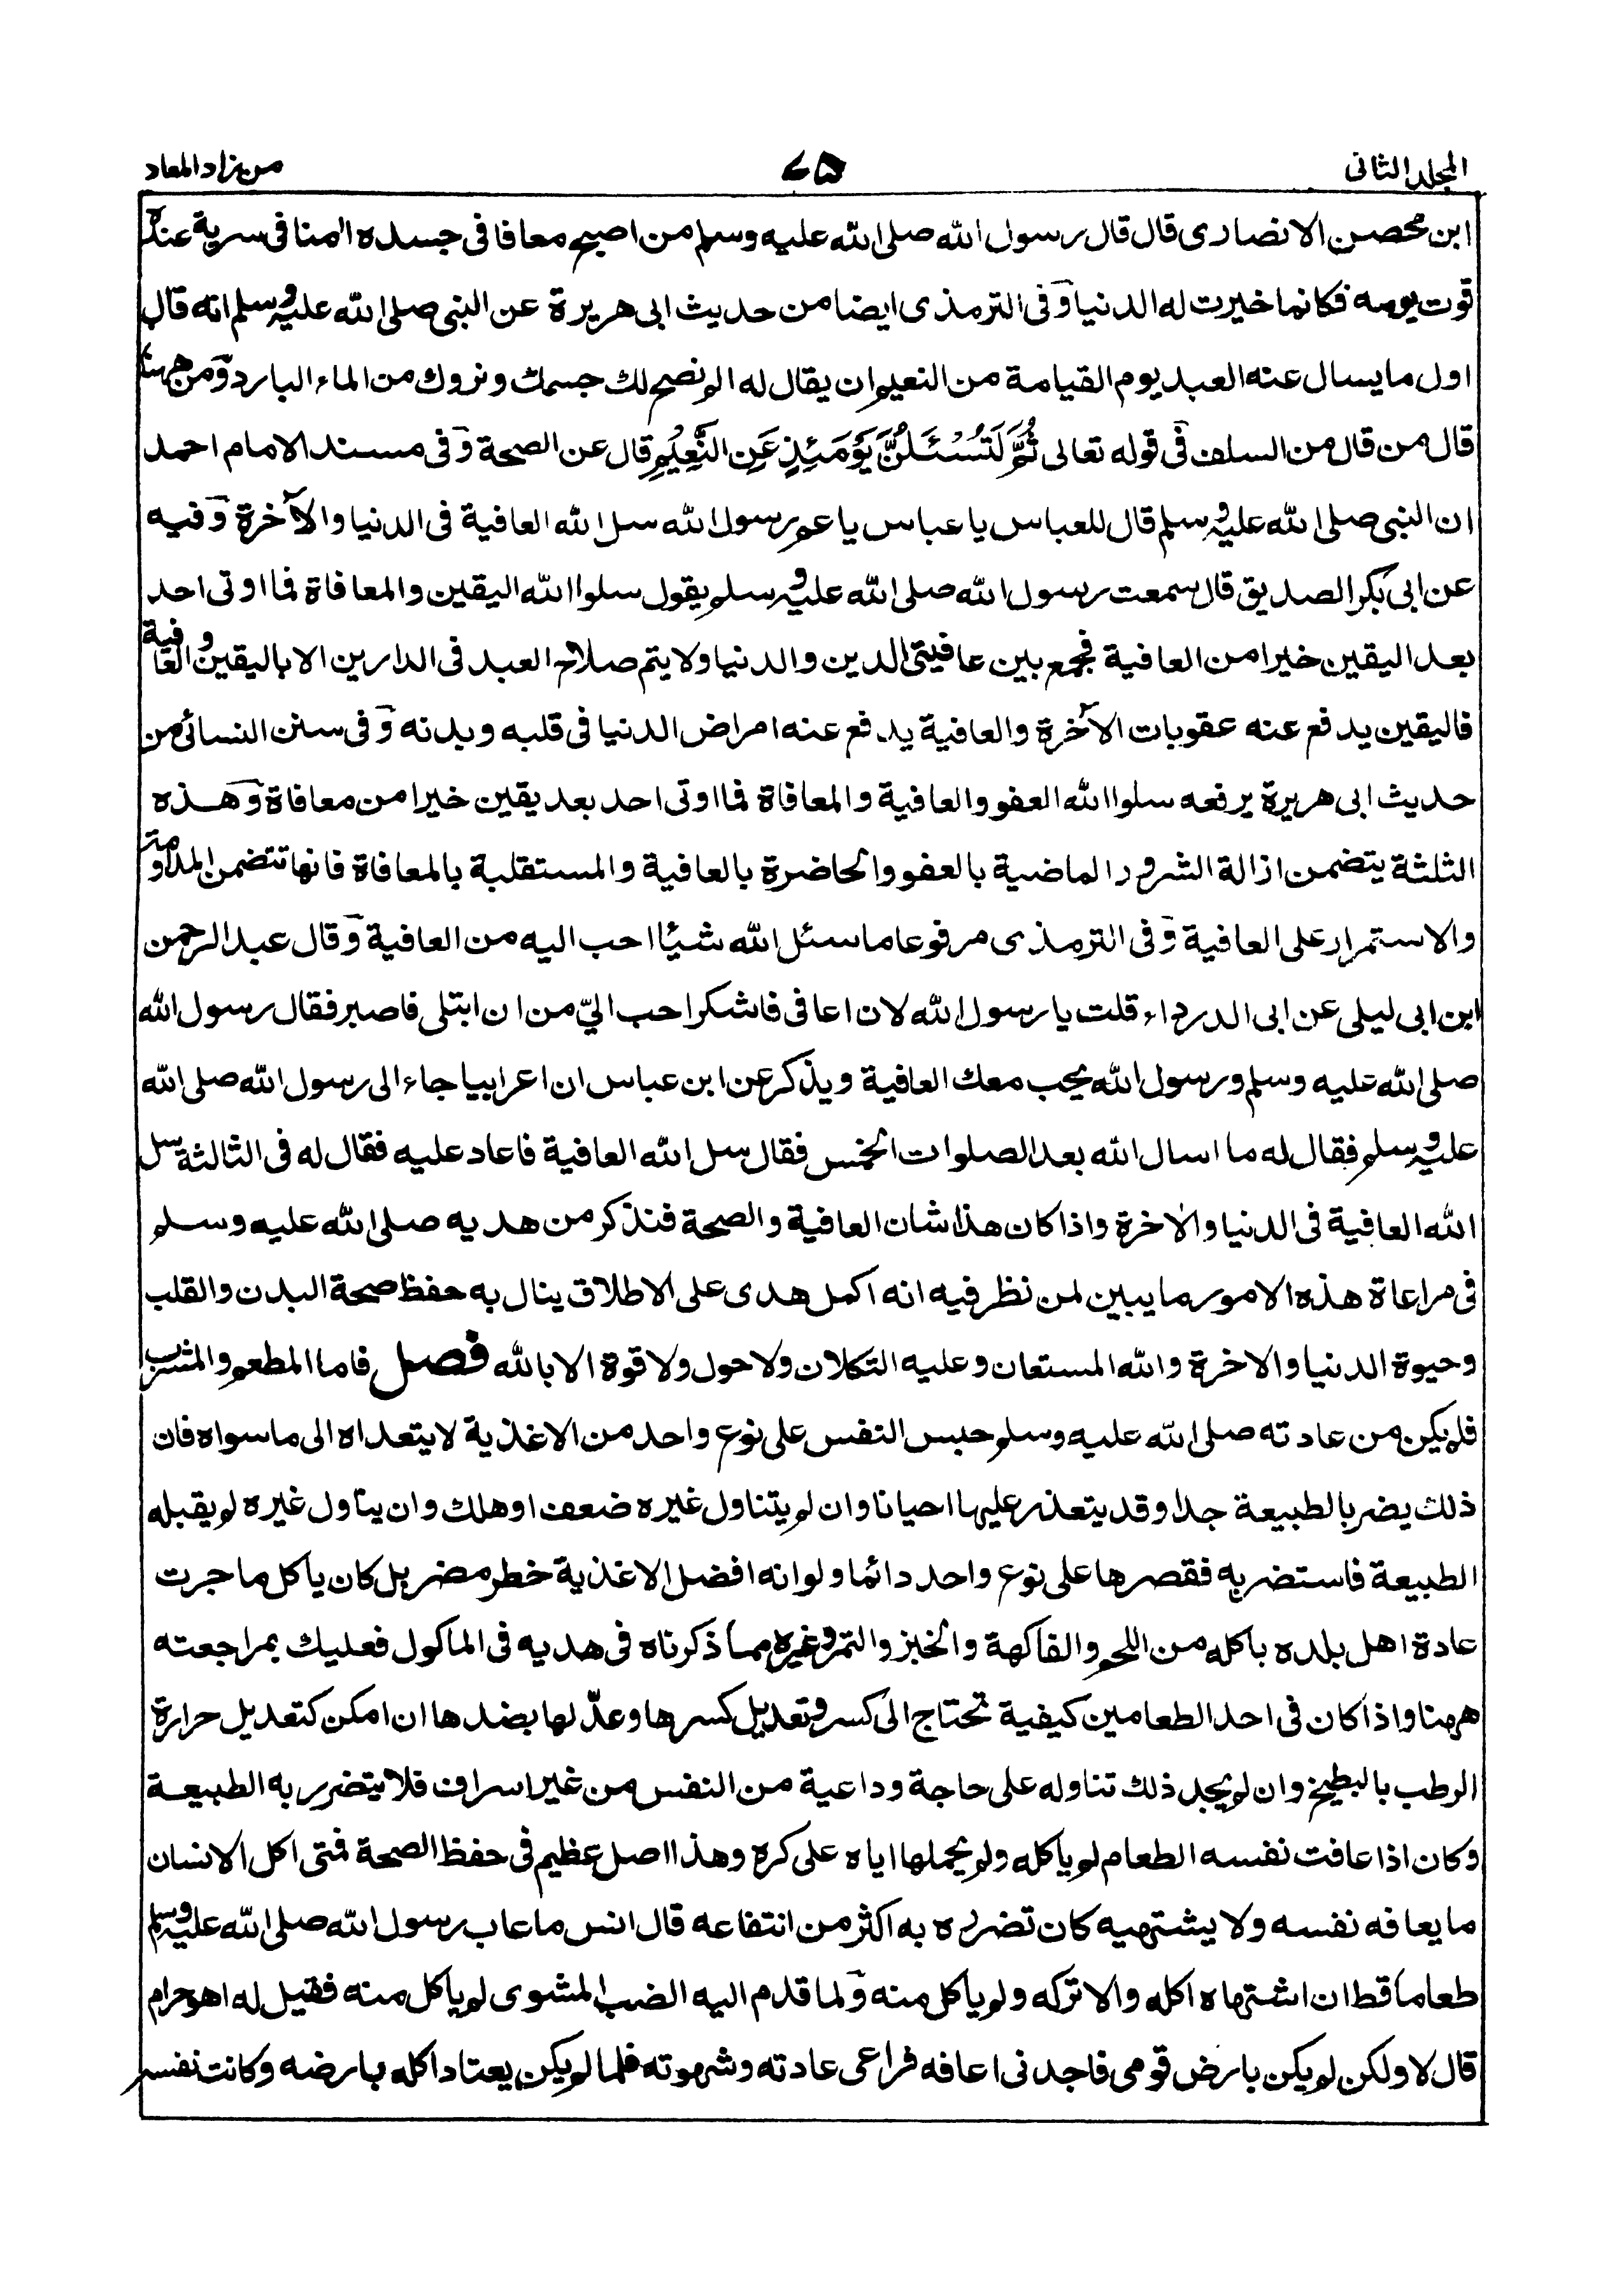 المجلد الثانی
۷۵
من زاد المعاد
ابن محصن الانصاری قال قال رسول الله صلی الله علیه وسلم من اصبح معافا فی جسده امنا فی سربة عنده
قوت یومه فکانما خیرت له الدنیا وفی الترمذی ایضا من حدیث ابی هریرة عن النبی صلی الله علیه وسلم انه قال
اول ما یسال عنه العبد یوم القیامة من النعیم ان یقال له الم نصح لك جسمك ونروك من الماء البارد ومن ههنا
قال من قال من السلف فی قوله تعالی ثُمَّ لَتُسْئَلُنَّ يَوْمَئِذٍ عَنِ النَّعِيْمِ قال عن الصحة وفی مسند الامام احمد
ان النبی صلی الله علیه وسلم قال للعباس یا عباس یا عم رسول الله سل الله العافیة فی الدنیا والآخرة وفیه
عن ابی بکر الصدیق قال سمعت رسول الله صلی الله علیه وسلم یقول سلوا الله الیقین والمعافاة فما اوتی احد
بعد الیقین خیرا من العافیة فجمع بین عافیتی الدین والدنیا ولا یتم صلاح العبد فی الدارین الا بالیقین والعافیة
فالیقین یدفع عنه عقوبات الآخرة والعافیة یدفع عنه امراض الدنیا فی قلبه وبدنه وفی سنن النسائی من
حدیث ابی هریرة یرفعه سلوا الله العفو والعافیة والمعافاة فما اوتی احد بعد یقین خیرا من معافاة وهذه
الثلثة یتضمن ازالة الشرور الماضیة بالعفو والحاضرة بالعافیة والمستقلبة بالمعافاة فانها تتضمن المداومة
والاستمرار علی العافیة وفی الترمذی مرفوعا ما سئل الله شیئا احب الیه من العافیة وقال عبد الرحمن
ابن ابی لیلی عن ابی الدرداء قلت یا رسول الله لان اعافی فاشکر احب الیّ من ان ابتلی فاصبر فقال رسول الله
صلی الله علیه وسلم ورسول الله یحب معك العافیة ویذکر عن ابن عباس ان اعرابیا جاء الی رسول الله صلی الله
علیه وسلم فقال له ما اسال الله بعد الصلوات الخمس فقال سل الله العافیة فاعاد علیه فقال له فی الثالثة سل
الله العافیة فی الدنیا والاخرة واذا کان هذا شان العافیة والصحة فنذکر من هدیه صلی الله علیه وسلم
فی مراعاة هذه الامور ما یبین لمن نظر فیه انه اکمل هدی علی الاطلاق ینال به حفظ صحة البدن والقلب
وحیوة الدنیا والاخرة والله المستعان وعلیه التکلان ولا حول ولا قوة الا بالله فصل فاما المطعم والمشرب
فلم یکن من عادته صلی الله علیه وسلم حبس النفس علی نوع واحد من الاغذیة لا یتعداه الی ما سواه فان
ذلك یضر بالطبیعة جدا وقد یتعذر علیها احیانا وان لم یتناول غیره ضعف او هلك وان یناول غیره لم یقبله
الطبیعة فاستضر به فقصرها علی نوع واحد دائما ولو انه افضل الاغذیة خطر مضر بل کان یاکل ما جرت
عادة اهل بلده باکله من اللحم والفاکهة والخبز والتمر وغیره مما ذکرناه فی هدیه فی الماکول فعلیك بمراجعته
ههنا واذا کان فی احد الطعامین کیفیة تحتاج الی کسر وتعدیل کسرها وعدّلها بضدها ان امکن کتعدیل حرارة
الرطب بالبطیخ وان لم یجد ذلك تناوله علی حاجة وداعیة من النفس من غیر اسراف فلا یتضرر به الطبیعة
وکان اذا عافت نفسه الطعام لم یاکله ولم یحملها ایاه علی کره وهذا اصل عظیم فی حفظ الصحة فمتی اکل الانسان
ما یعافه نفسه ولا یشتهیه کان تضرره به اکثر من انتفاعه قال انس ما عاب رسول الله صلی الله علیه وسلم
طعاما قط ان اشتهاه اکله والا ترکه ولم یاکل منه ولما قدم الیه الضب المشوی لم یاکل منه فقیل له اهو حرام
قال لا ولکن لم یکن بارض قومی فاجدنی اعافه فراعی عادته وشهوته فلما لم یکن یعتاد اکله بارضه وکانت نفسه